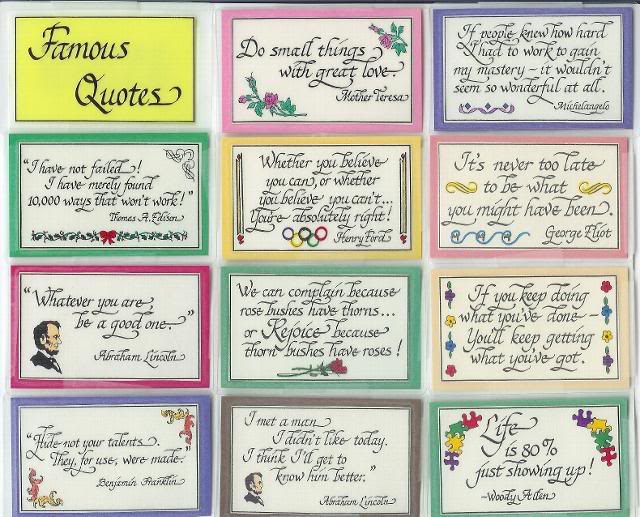 Famous
Quotes
Do small things
with great love.
Mother Teresa
If people knew how hard
I had to work to gain
my mastery – it wouldn't
seem so wonderful at all.
Michelangelo
"I have not failed!
I have merely found
10,000 ways that won't work!"
Thomas A. Edison
Whether you believe
you can, or whether
you believe you can't...
You're absolutely right!
Henry Ford
It's never too late
to be what
you might have been.
George Eliot
"Whatever you are,
be a good one."
Abraham Lincoln
We can complain because
rose bushes have thorns...
or Rejoice because
thorn bushes have roses!
If you keep doing
what you've done –
You'll keep getting
what you've got.
"Hide not your talents.
They, for use, were made."
Benjamin Franklin
I met a man
I didn't like today.
I think I'll get to
know him better."
Abraham Lincoln
Life
is 80%
just showing up!
~Woody Allen